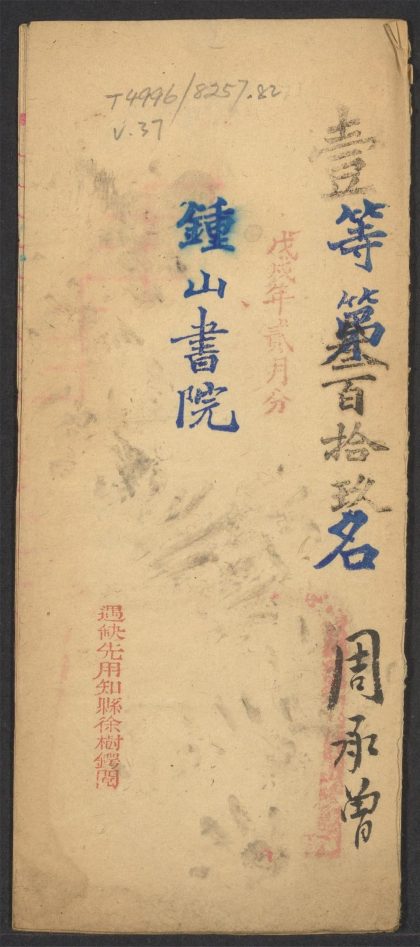 T4996/8257.82
v.37
壹等第壹百拾玖名
周承曾
戊戌年貳月分
鍾山書院
遇缺先用知縣徐樹鍔閱